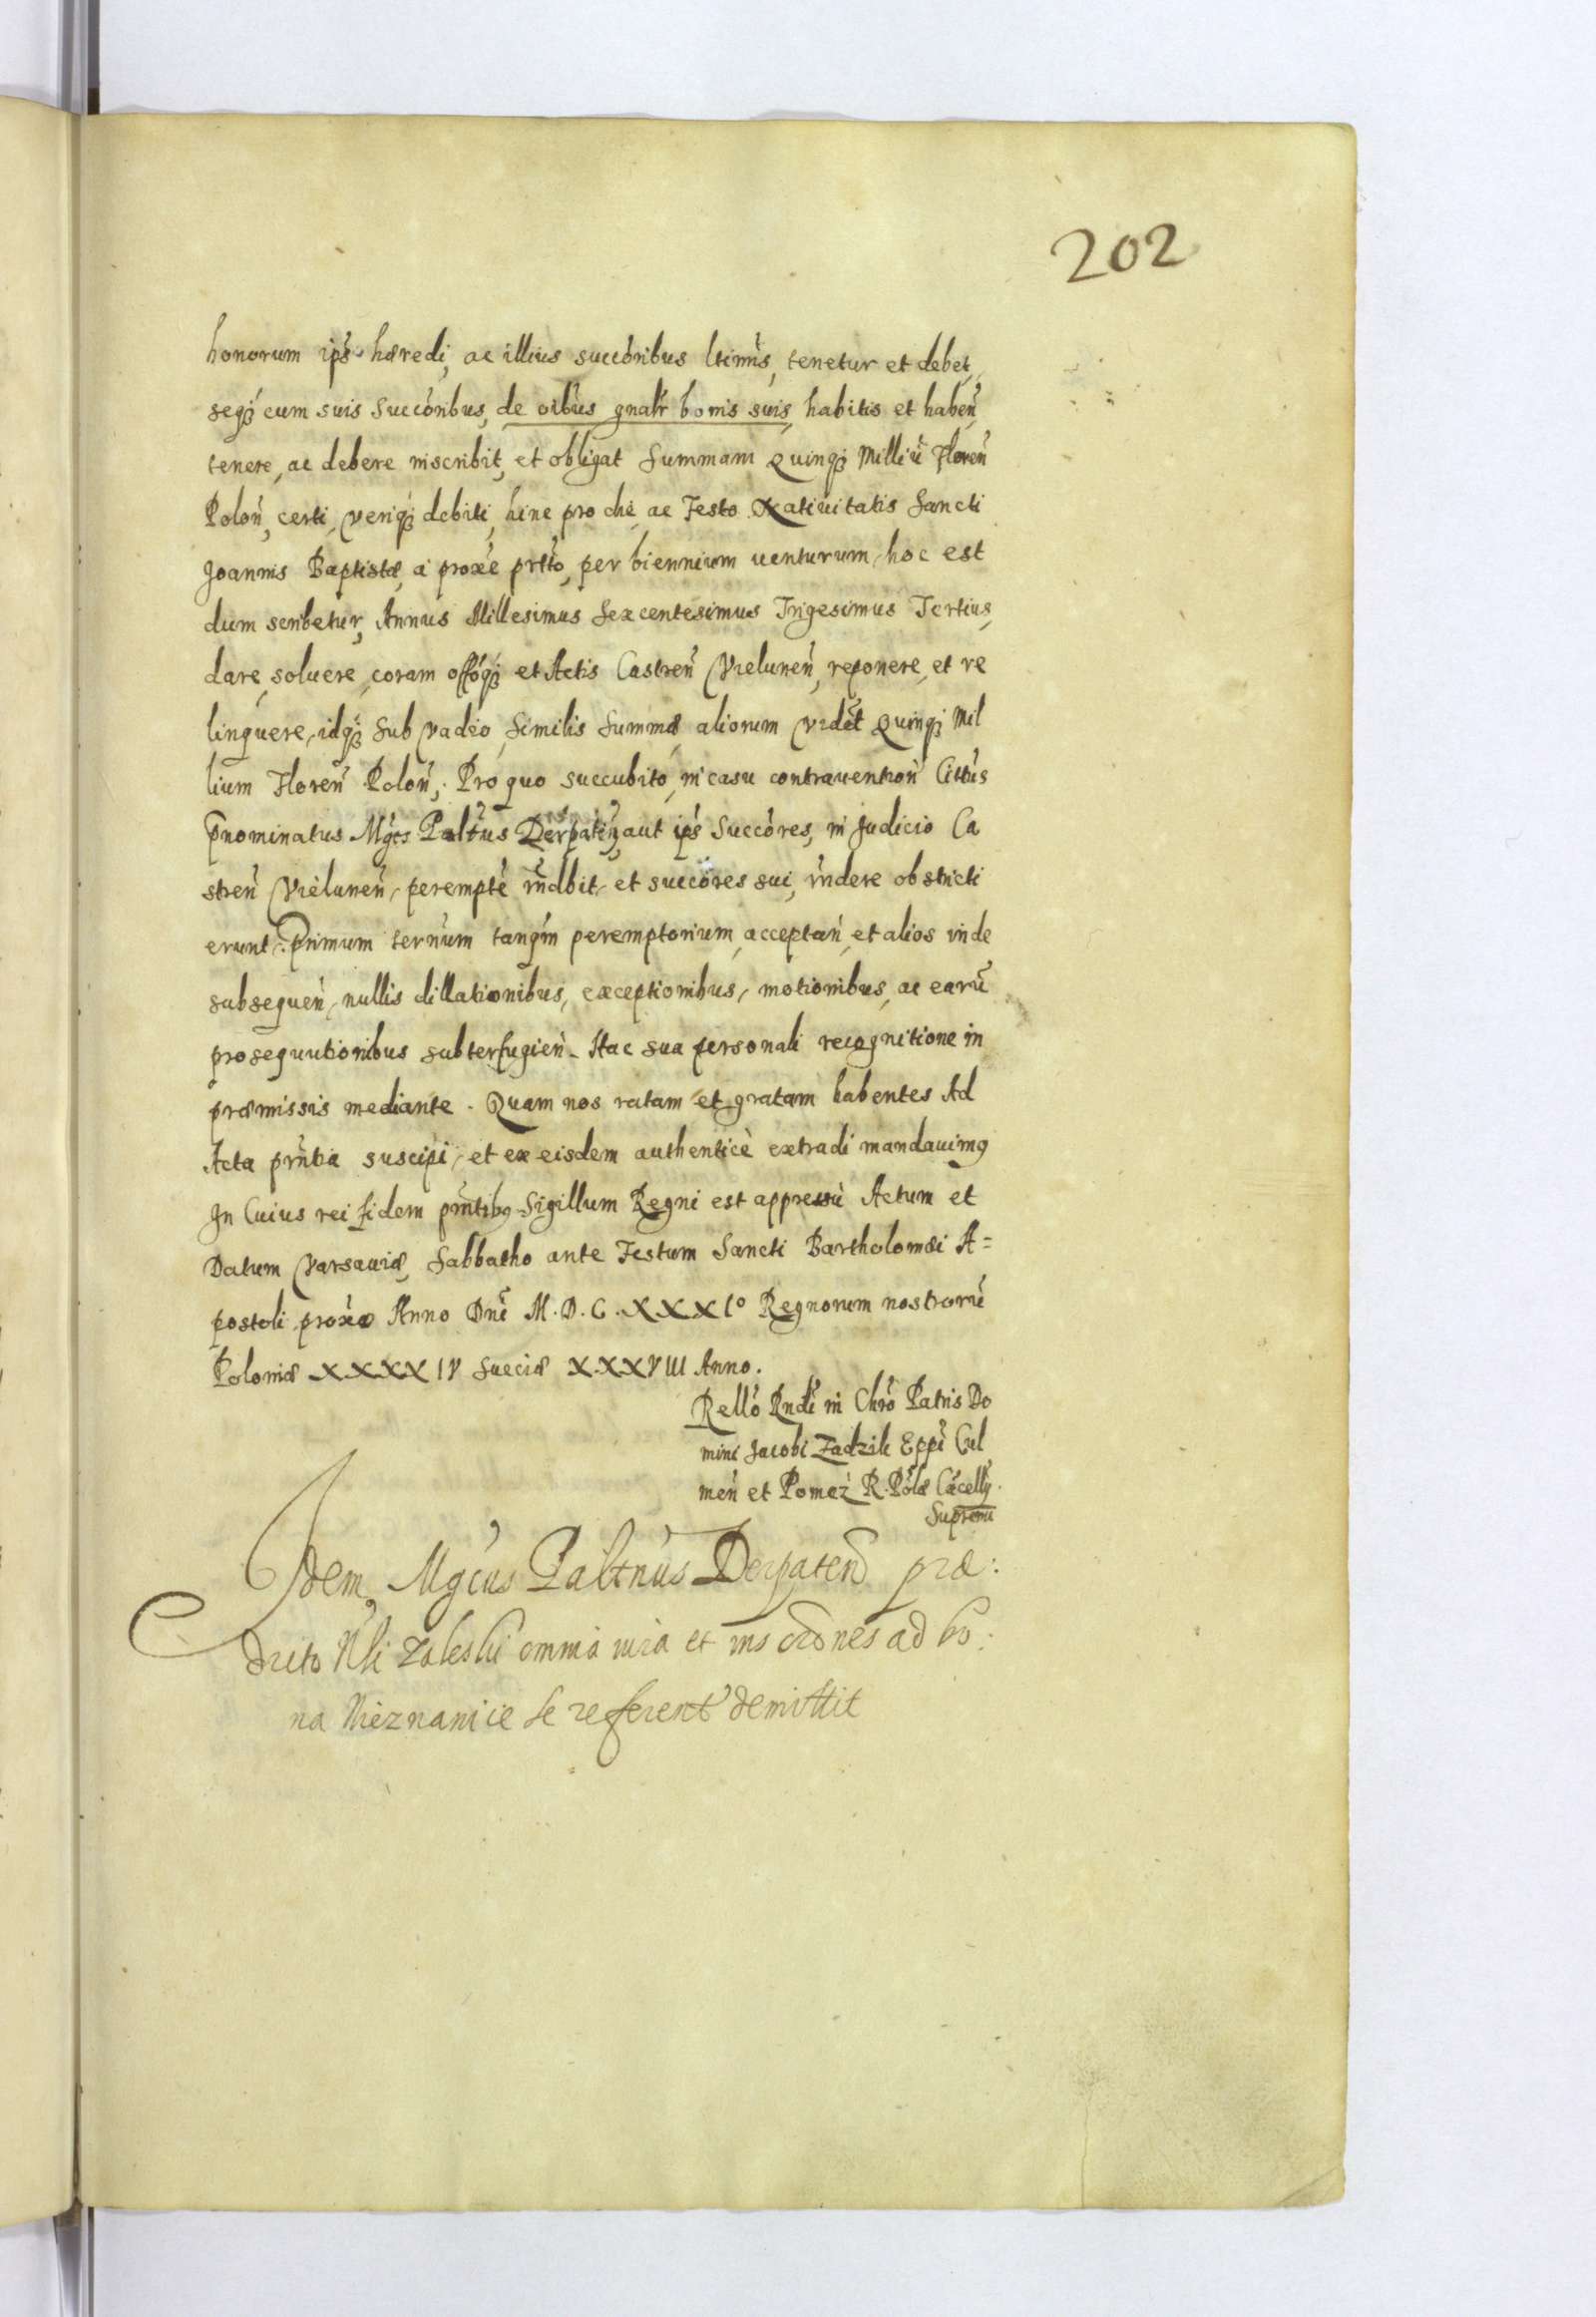 202
honorum ips̃ hæredi, ac illius succõribus ltim̃is, tenetur et debet,
seqȝ cum suis succõribus, de oĩbus gnalr̃ bonis suis, habitis et habeñ,
tenere, ac debere inscribit, et obligat Summam Quinqȝ Milliũ Floreñ
Poloñ, certi, veriqȝ debiti, hinc pro die, ac Festo Natiuitatis Sancti
Joannis Baptistæ, a proxẽ prẽto, per biennium venturum, hoc est
dum scribetur, Annus Millesimus Sexcentesimus Trigesimus Tertius,
dare, soluere, coram offõqȝ et Actis Castreñ Vieluneñ, reponere, et re
linquere, idqȝ sub vadio, similis summæ, aliorum videt̃ Quinqȝ Mil
lium Floreñ Poloñ; Pro quo succubito, in casu contrauentioñ Citt̃us
p̃nominatus Mgc̃s Palt̃us Derpateñ, aut ips̃ Succõres, in Judicio Ca
streñ Vieluneñ, peremptẽ rñdbit, et succõres sui, rñdere obstricti
erunt. Primum ternum tanqm̃ peremptorium, acceptañ, et alios inde
subsequeñ, nullis dillationibus, exceptionibus, motionibus, ac earũ
prosequutionibus subterfugieñ. Hac sua personali recognitione in
præmissis mediante. Quam nos ratam et gratam habentes Ad
Acta prñtia suscipi, et ex eisdem authenticè extradi mandauimꝰ
In Cuius rei fidem prñtibꝰ Sigillum Regni est appressũ Actum et
Datum Varsauiæ, Sabbatho ante Festum Sancti Bartholomæi A=
postoli proxẽ Anno Dnĩ M.D.C.XXXIº Regnorum nostrorũ
Poloniæ XXXXIV Sueciæ XXXVIII Anno.
Rellõ Rndĩ in Chrõ Patris Do
mini Jacobi Zadzik Eppĩ Cul
meñ et Pomez̃ R. Põlæ Cãcellȳ
Supremi
Idem Mgc̃us Paltñus Derpateñ præ:
dicto Nli Zaleski omnia iura et inscr̃ones ad bo:
na Nieznanice se referent̃ demittit